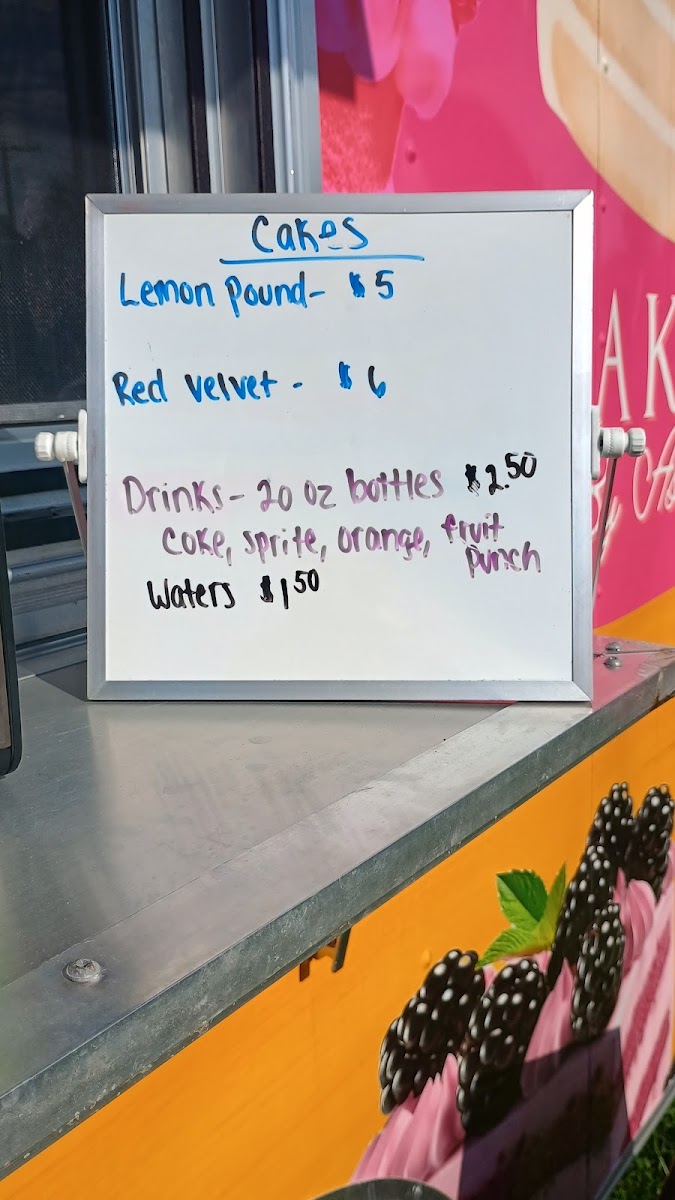 Cakes
Lemon Pound- $5
Red Velvet - $6
Drinks- 20 oz bottles $2.50
Coke, sprite, orange, fruit
punch
Waters $1.50
AK